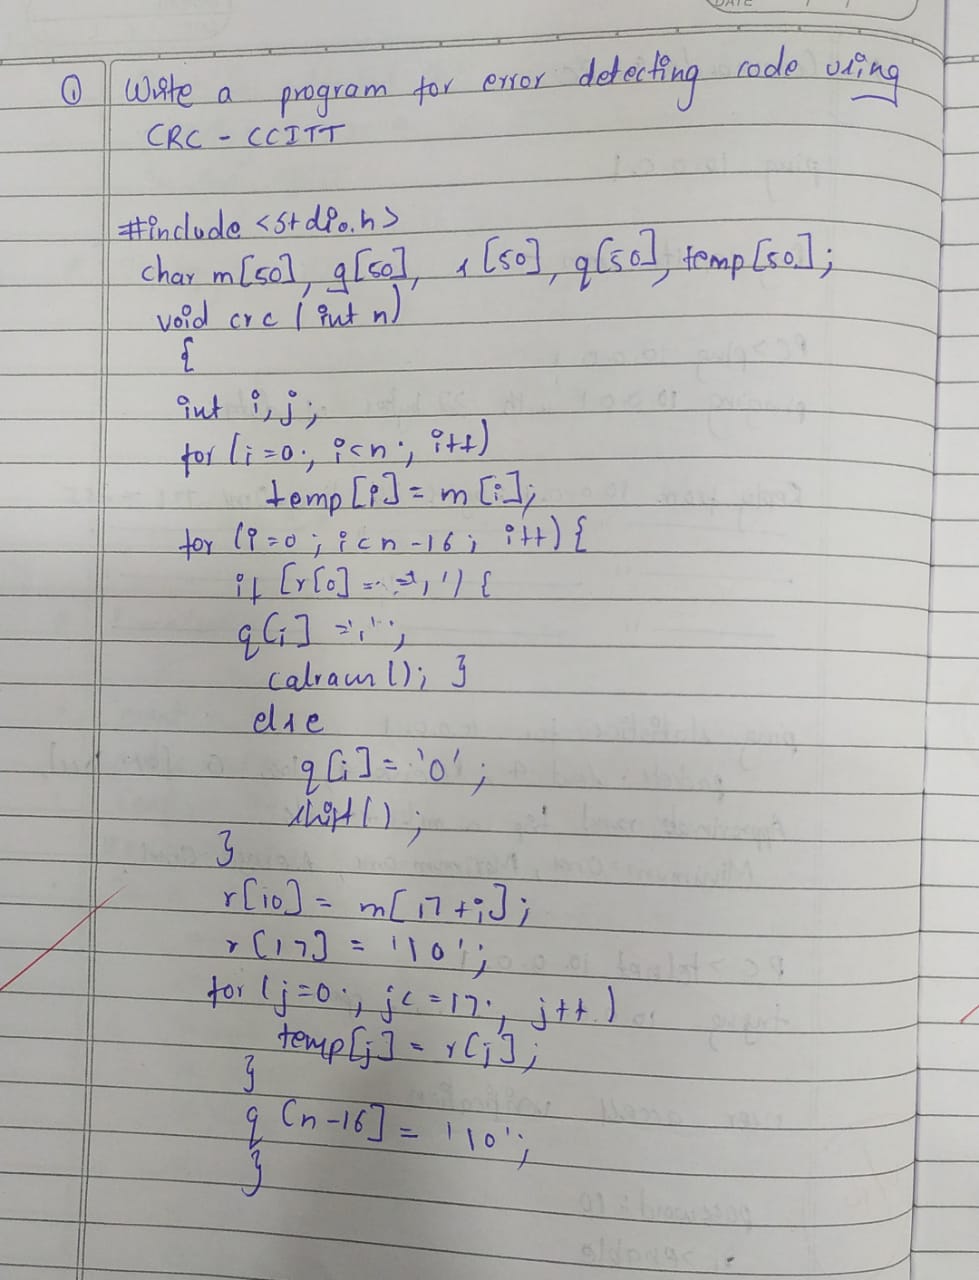 DATE
① Write a program for error detecting code using
CRC - CCITT
#include <stdio.h>
char m[50], g[50], r[50], q[50], temp[50];
void crc (int n)
{
int i, j;
for (i=0; i<n; i++)
temp[i] = m[i];
for (i=0; i<n-16; i++) {
if [r[0] == '1') {
q[i] = '1';
calram(); }
else
q[i] = '0';
shift();
}
r[10] = m[17+i];
r[17] = '\0';
for (j=0; j<=17; j++)
temp[j] = r[j];
}
q[n-16] = '\0';
}